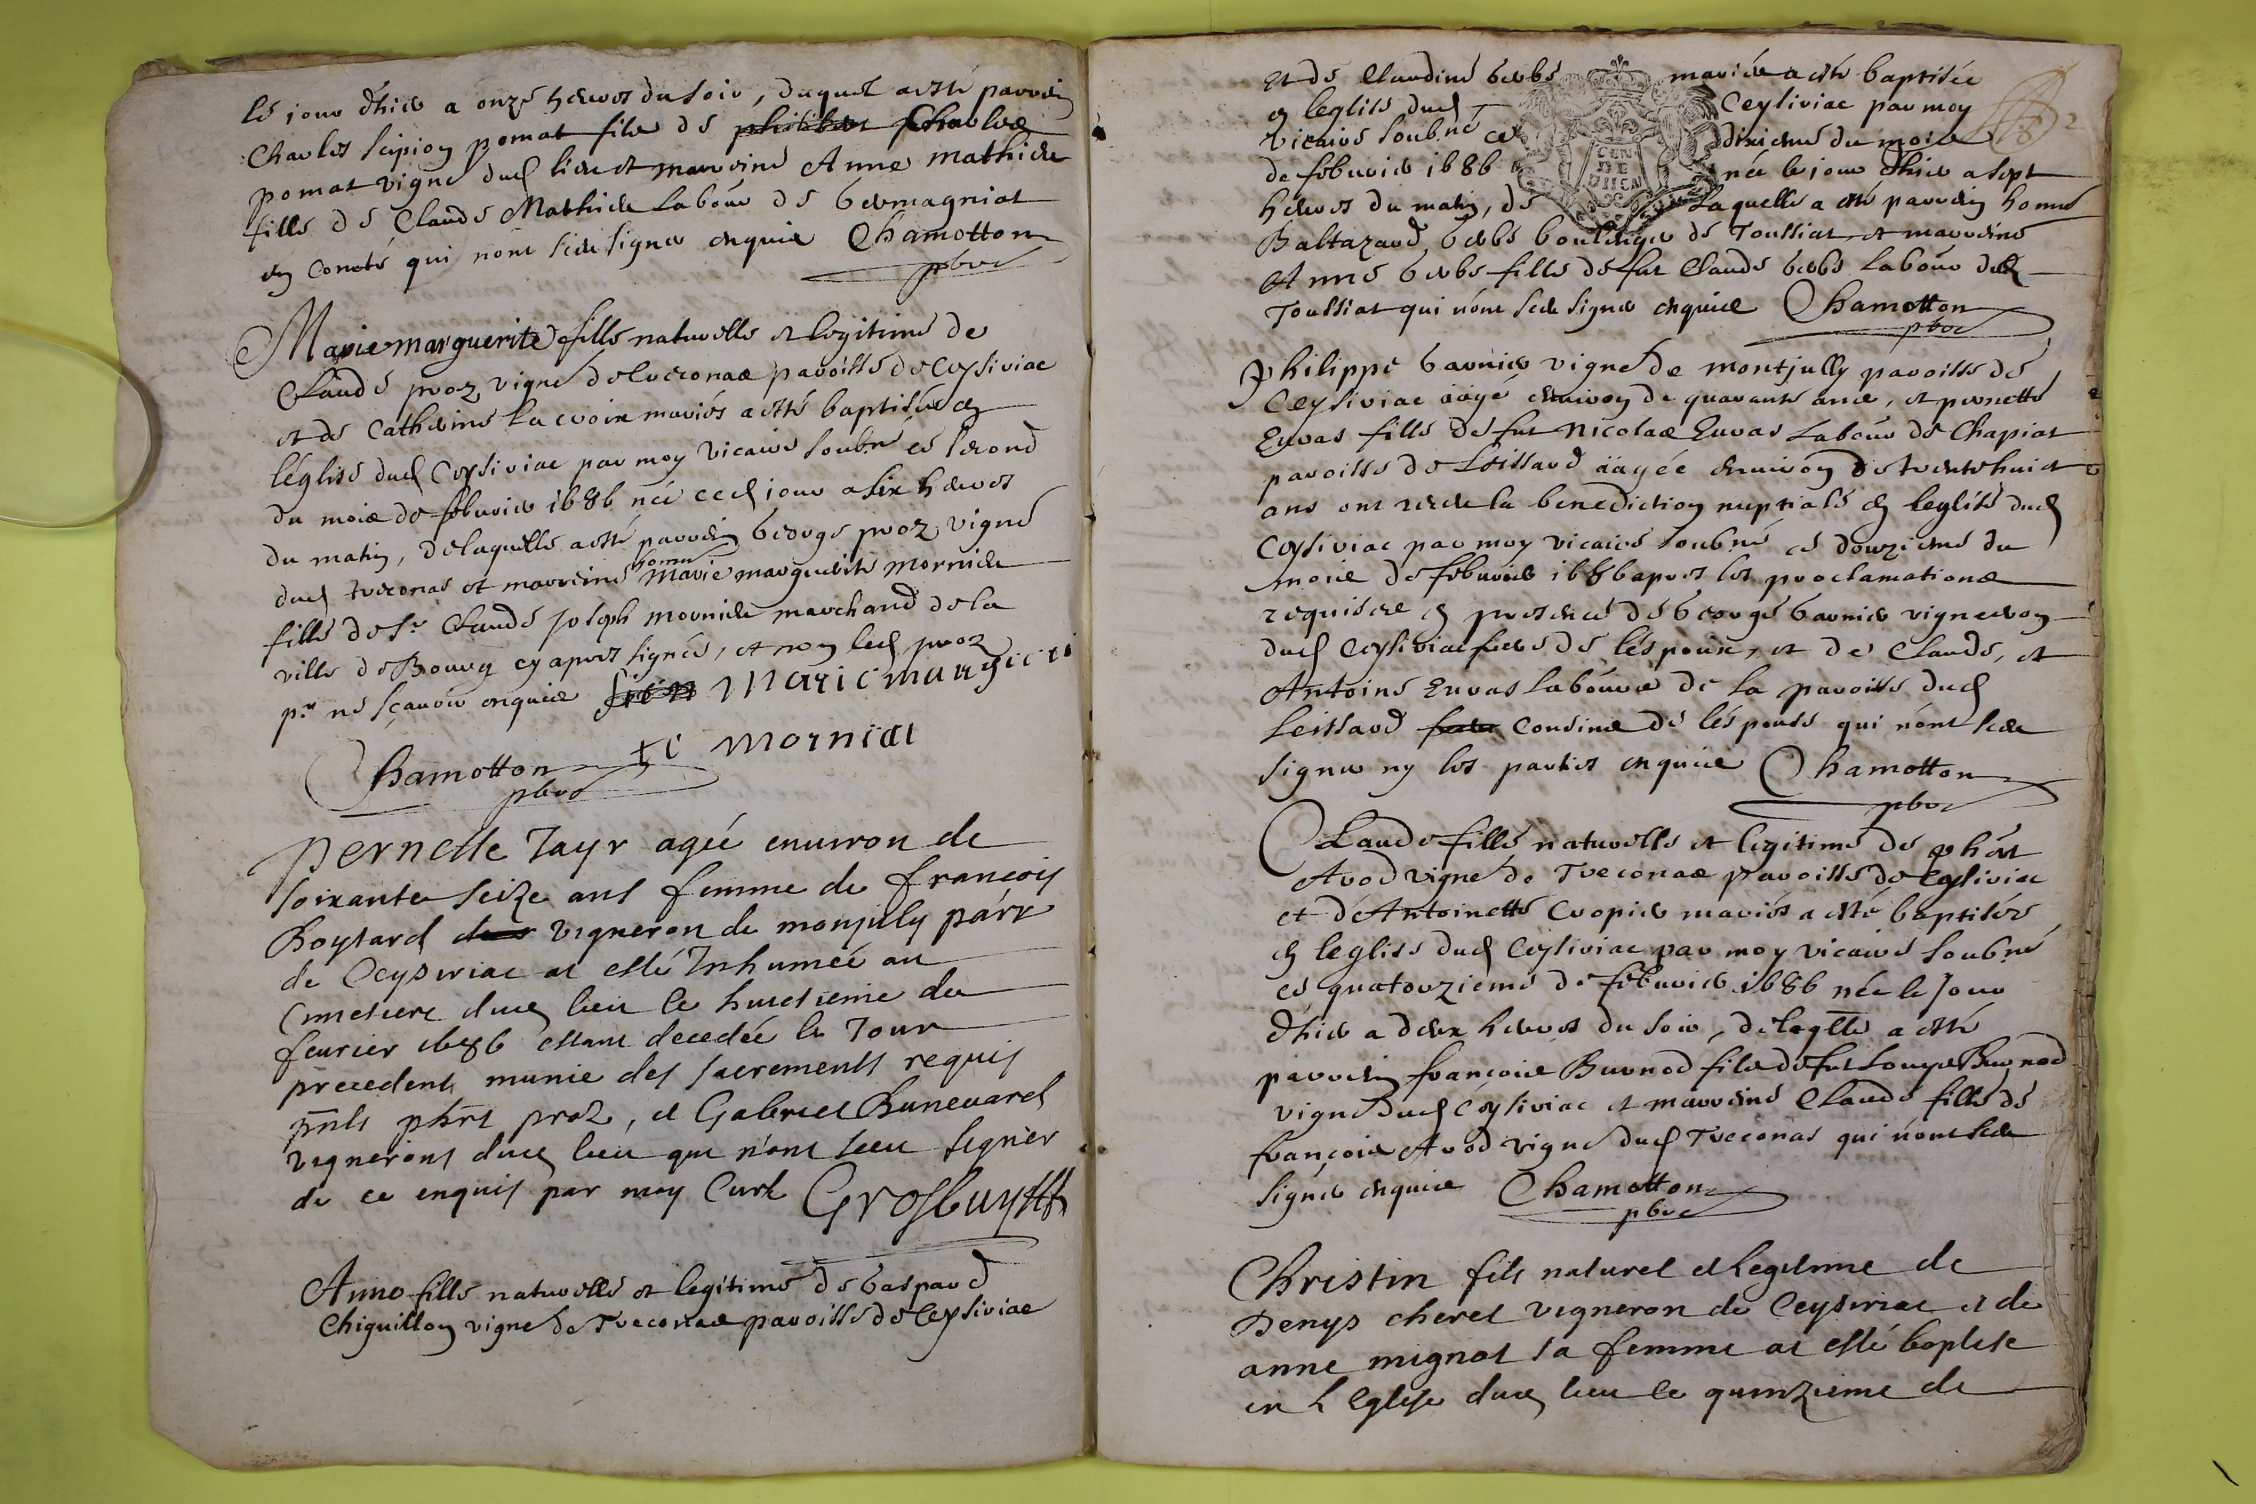 le jour d'hier a onze heures du soir, duquel a esté parrein
Charles scipion pomat fils de philibert Charles
pomat vigne dud lieu et marreine Anne Mathieu
fille de Claude Mathieu labour de Germagniat
en Comté qui n'ont sceu signer enquis Chamotton
pbre
Marie marguerite fille naturelle et legitime de
Claude proz vigne de treconas paroisse de Ceysiriac
et de Catherine La croix mariés a esté baptisée en
l'église dud Ceysiriac par moy vicaire soubne ce second
du mois de febvrier 1686 née ced jour a six heures
du matin, de laquelle a esté parrein George proz vigne
dud treconas et marreine honne Marie marguerite Mornieu
fille de sr Claude Joseph mornieu marchand de la
ville de Bourg cy apres signée, et non led proz
pr ne sçavoir enquis Marie margueri
te mornieu
Chamotton
pbre
Pernette Tayr agée environ de
soixante seize ans femme de françois
Boytard vigneron de monjuly parr
de Ceysiriac at esté Inhumée au
Cimetiere dud lieu le huictieme de
feurier 1686 estant decedée le Jour
precedent munie des sacrements requis
pnts phrt proz, et Gabriel Bunevard
vignerons dud lieu qui n'ont sceu signer
de ce enquis par moy Curé Grosbuysst
Anne fille naturelle et legitime de Gaspard
Chiguillon vigne de Treconas paroisse de Ceysiriac
Et de Claudine Gerbe mariés a esté baptisée
en l'eglise dud Ceysiriac par moy
vicaire soubne ce dixieme du mois
de febvrier 1686 née le jour d'hier a sept
GEN DE DIJON
heures du matin, de laquelle a esté parrein honne
Baltazard Gerbe boulenger de Toussiat et marreine
Anne Gerbe fille de fut Claude Gerbe labour dud
Toussiat qui n'ont sceu signer enquis Chamotton
pbre
Philippe Garnier vigne de montjully paroisse de
Ceysiriac aagé environ de quarante ans, et pernette
Euras fille de fut Nicolas Euras labour de Chapiat
paroisse de Leissard aagée environ de trente huict
ans ont receu la benediction nuptiale en l'eglise dud
Ceysiriac par moy vicaire soubne ce douzieme du
mois de febvrier 1686 apres les proclamations
requises en presence de George Garnier vigneron
dud Ceysiriac frere de l'espoux, et de Claude, et
Antoine Euras laboure de la paroisse dud
Leissard cousins de l'espouse qui n'ont sceu
signer ny les parties enquis Chamotton
pbre
Claude fille naturelle et legitime de phert
Arod vigne de Treconas paroisse de Ceysiriac
et de Antoinette Cropier mariés a esté baptisée
en l'eglise dud Ceysiriac par moy vicaire soubne
ce quatorzieme de febvrier 1686 née le Jour
d'hier a deux heures du soir, de laqlle a esté
parrein françois Burnod fils de fut Louys Burnod
vigne dud Ceysiriac et marreine Claude fille de
françois Arod vigne dud Treconas qui n'ont sceu
signer enquis Chamotton
pbre
Christin fils naturel et Legitime de
Denys cheret vigneron de Ceysiriac et de
anne mignot sa femme at esté baptise
en L'Eglise dud lieu le quinzieme de